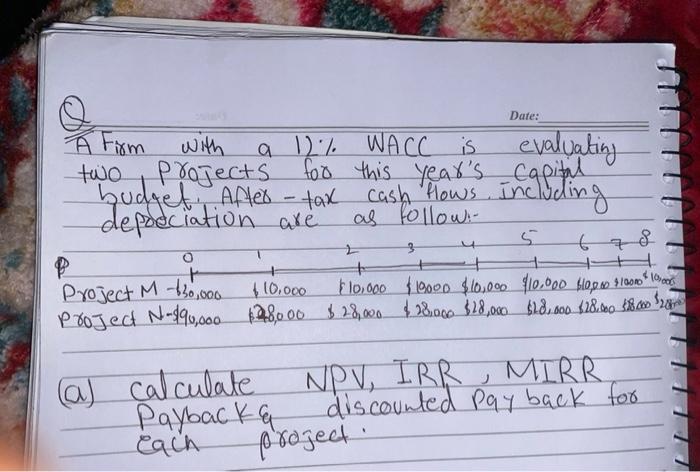 Q
Date:
A Firm with a 12% WACC is evaluating
two projects for this year's capital
budget. After-tax cash flows. including
depreciation are as follow:-
0 1 2 3 4 5 6 7 8
Project M -$30,000 $10,000 $10,000 $10000 $10,000 $10,000 $10,000 $10000 $10,000
Project N-$90,000 $28,000 $28,000 $28,000 $28,000 $28,000 $28,000 $28,000 $28000
(a) calculate NPV, IRR, MIRR
Payback & discounted payback for
each project.